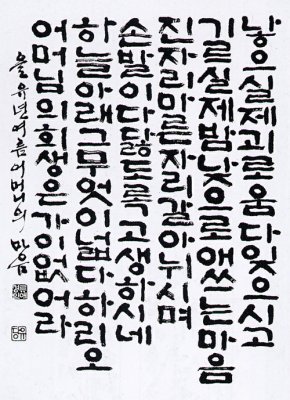 낳으실제괴로움다잊으시고
기르실제밤낮으로애쓰는마음
진자리마른자리갈아뉘시며
손발이다닳도록고생하시네
하늘아래그무엇이넓다하리오
어머님의희생은가이없어라
을유년여름어머니의 마음